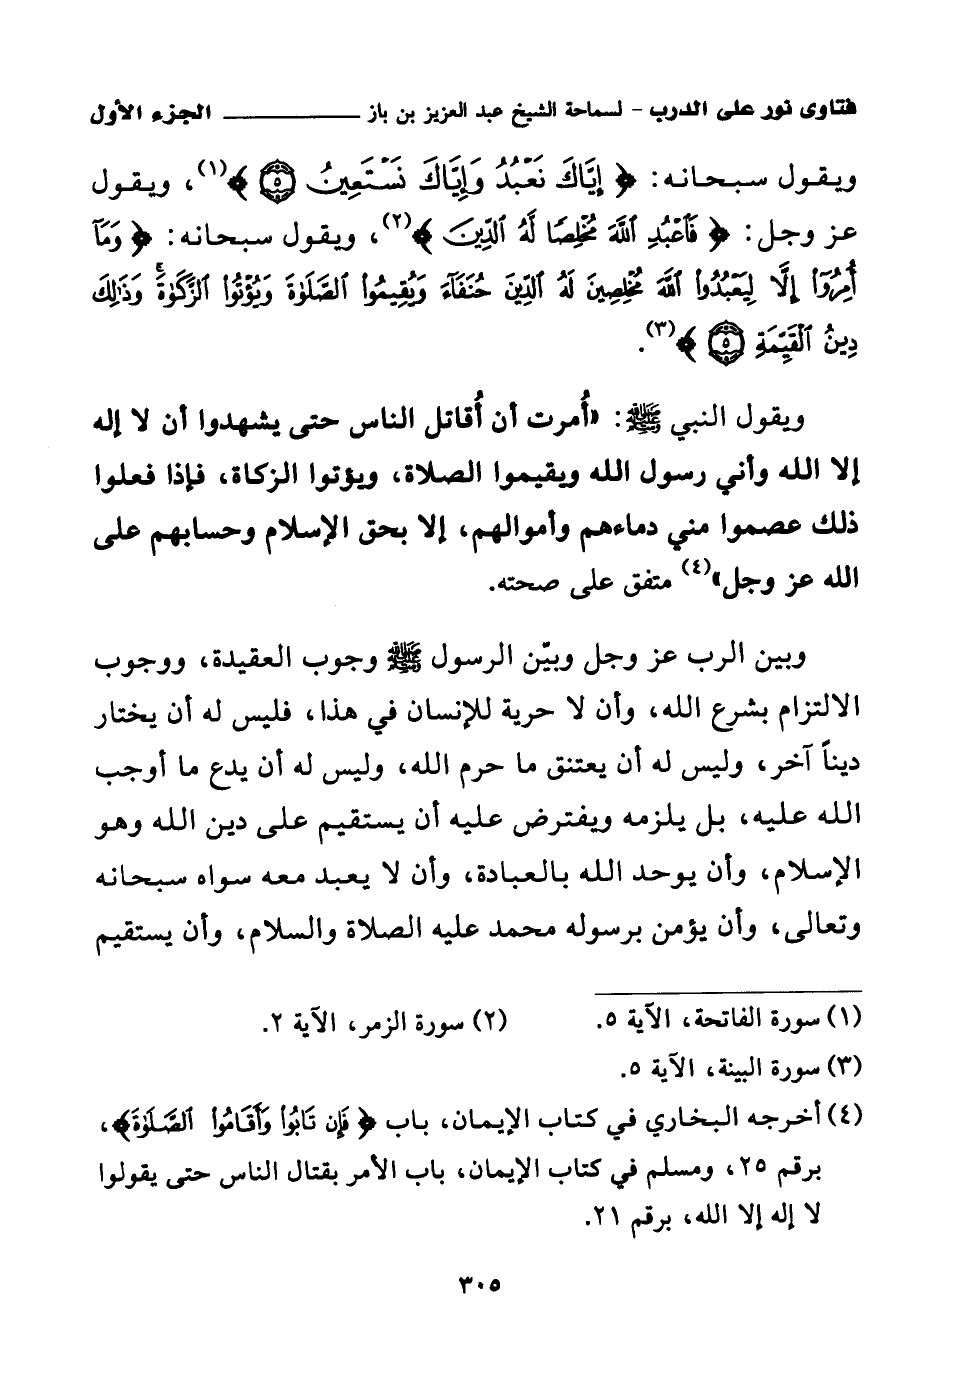 فتاوى نور على الدرب - لسماحة الشيخ عبد العزيز بن باز ــــــــــــ الجزء الأول
ويقول سبحانه: ﴿ إِيَّاكَ نَعْبُدُ وَإِيَّاكَ نَسْتَعِينُ ۝٥ ﴾(١)، ويقول
عز وجل: ﴿ فَٱعْبُدِ ٱللَّهَ مُخْلِصًا لَّهُ ٱلدِّينَ ﴾(٢)، ويقول سبحانه: ﴿ وَمَآ
أُمِرُوٓا۟ إِلَّا لِيَعْبُدُوا۟ ٱللَّهَ مُخْلِصِينَ لَهُ ٱلدِّينَ حُنَفَآءَ وَيُقِيمُوا۟ ٱلصَّلَوٰةَ وَيُؤْتُوا۟ ٱلزَّكَوٰةَ ۚ وَذَٰلِكَ
دِينُ ٱلْقَيِّمَةِ ۝٥ ﴾(٣).
ويقول النبي ﷺ: «أُمرت أن أُقاتل الناس حتى يشهدوا أن لا إله
إلا الله وأني رسول الله ويقيموا الصلاة، ويؤتوا الزكاة، فإذا فعلوا
ذلك عصموا مني دماءهم وأموالهم، إلا بحق الإسلام وحسابهم على
الله عز وجل»(٤) متفق على صحته.
وبين الرب عز وجل وبيّن الرسول ﷺ وجوب العقيدة، ووجوب
الالتزام بشرع الله، وأن لا حرية للإنسان في هذا، فليس له أن يختار
ديناً آخر، وليس له أن يعتنق ما حرم الله، وليس له أن يدع ما أوجب
الله عليه، بل يلزمه ويفترض عليه أن يستقيم على دين الله وهو
الإسلام، وأن يوحد الله بالعبادة، وأن لا يعبد معه سواه سبحانه
وتعالى، وأن يؤمن برسوله محمد عليه الصلاة والسلام، وأن يستقيم
(١) سورة الفاتحة، الآية ٥. (٢) سورة الزمر، الآية ٢.
(٣) سورة البينة، الآية ٥.
(٤) أخرجه البخاري في كتاب الإيمان، باب ﴿ فَإِن تَابُوا۟ وَأَقَامُوا۟ ٱلصَّلَوٰةَ﴾،
برقم ٢٥، ومسلم في كتاب الإيمان، باب الأمر بقتال الناس حتى يقولوا
لا إله إلا الله، برقم ٢١.
٣٠٥